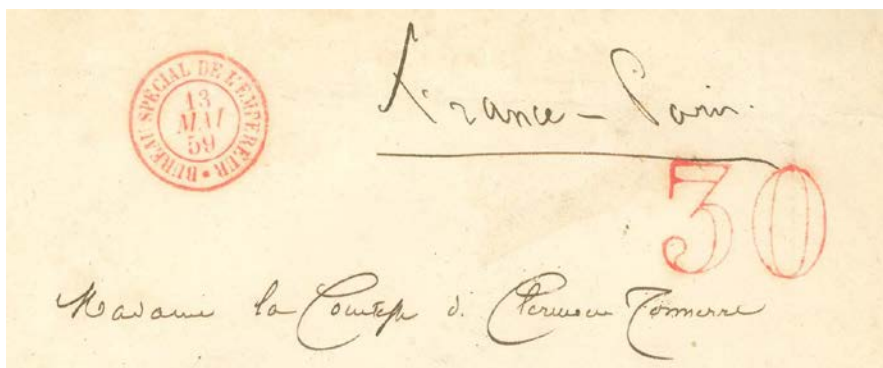 BUREAU SPÉCIAL DE L'EMPEREUR
13
MAI
59
France – Paris.
30
Madame la Comtesse de Clermont Tonnerre